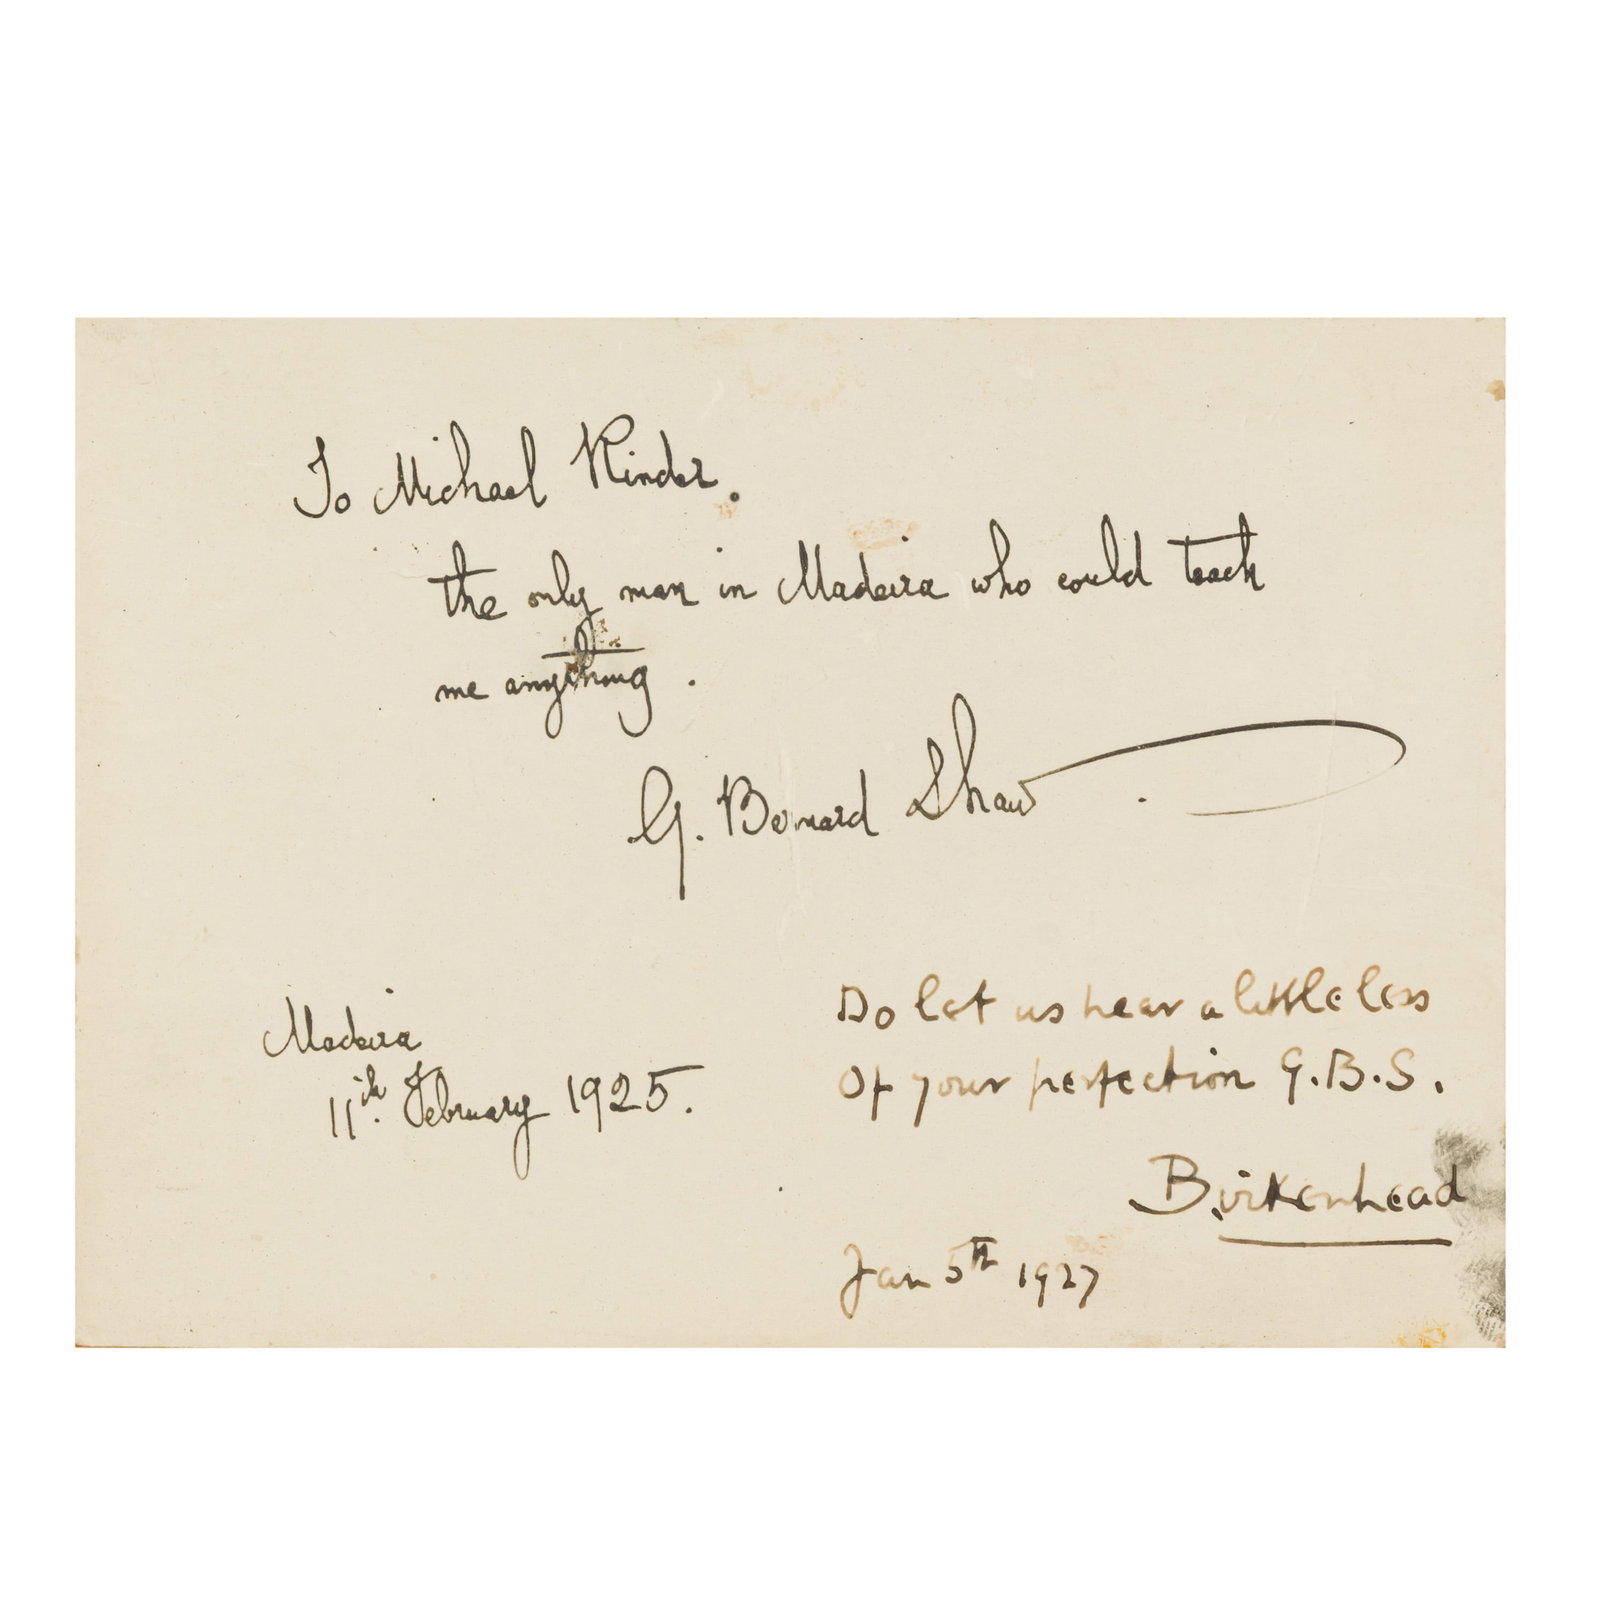 To Michael Rinder.
the only man in Madeira who could teach
me anything.
G. Bernard Shaw
Madeira
11th. February 1925.
Do let us hear a little less
Of your perfection G.B.S.
Birkenhead
Jan 5th 1927